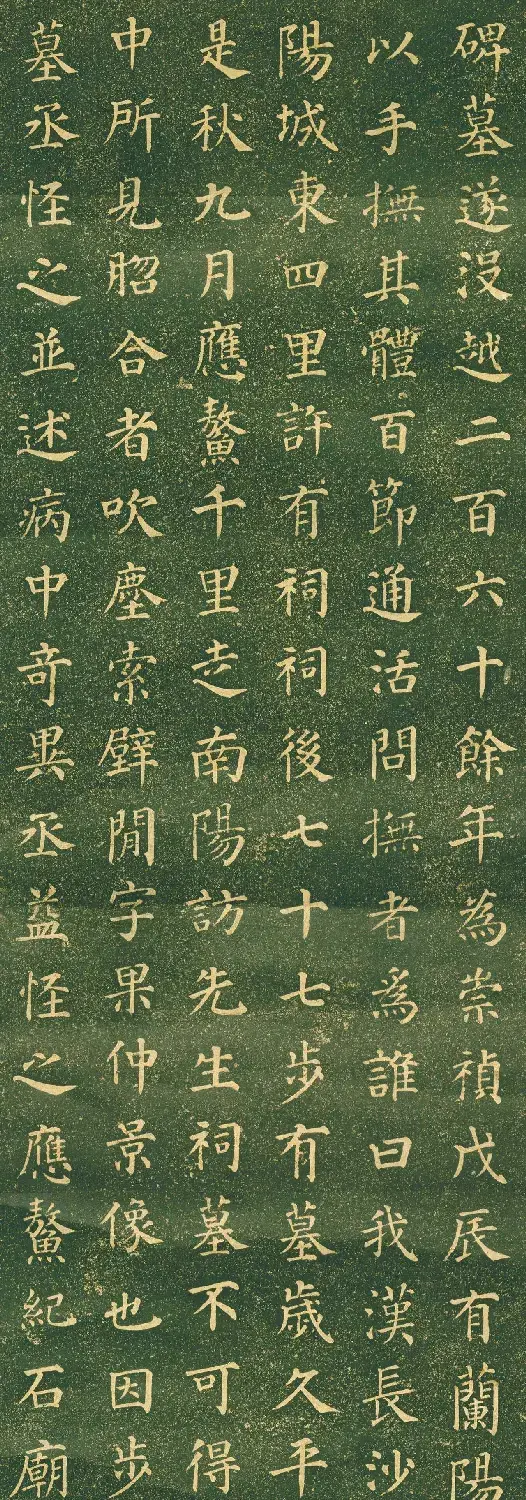 碑墓遂没越二百六十餘年為崇禎戊辰有蘭陽
以手撫其體百節通活問撫者爲誰曰我漢長沙
陽城東四里許有祠祠後七十七步有墓歲久平
是秋九月應鰲千里走南陽訪先生祠墓不可得
中所見脗合者吹塵索壁閒字果仲景像也因步
墓丞怪之並述病中竒異丞益怪之應鰲紀石廟